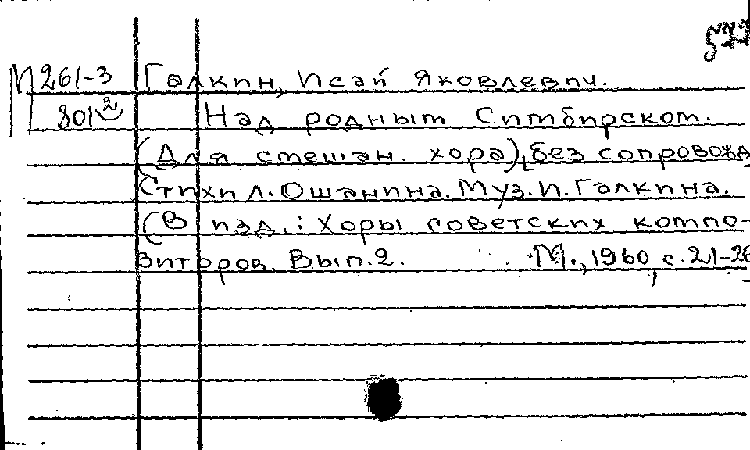 577
М 261-3 Галкин, Исай Яковлевич.
801² Над родным Симбирском.
(Для смешан. хора), без сопровожд
Стихи Л. Ошанина. Муз. И. Галкина.
(В изд.: Хоры советских компо-
зиторов. Вып. 2. М., 1960, с. 21-26